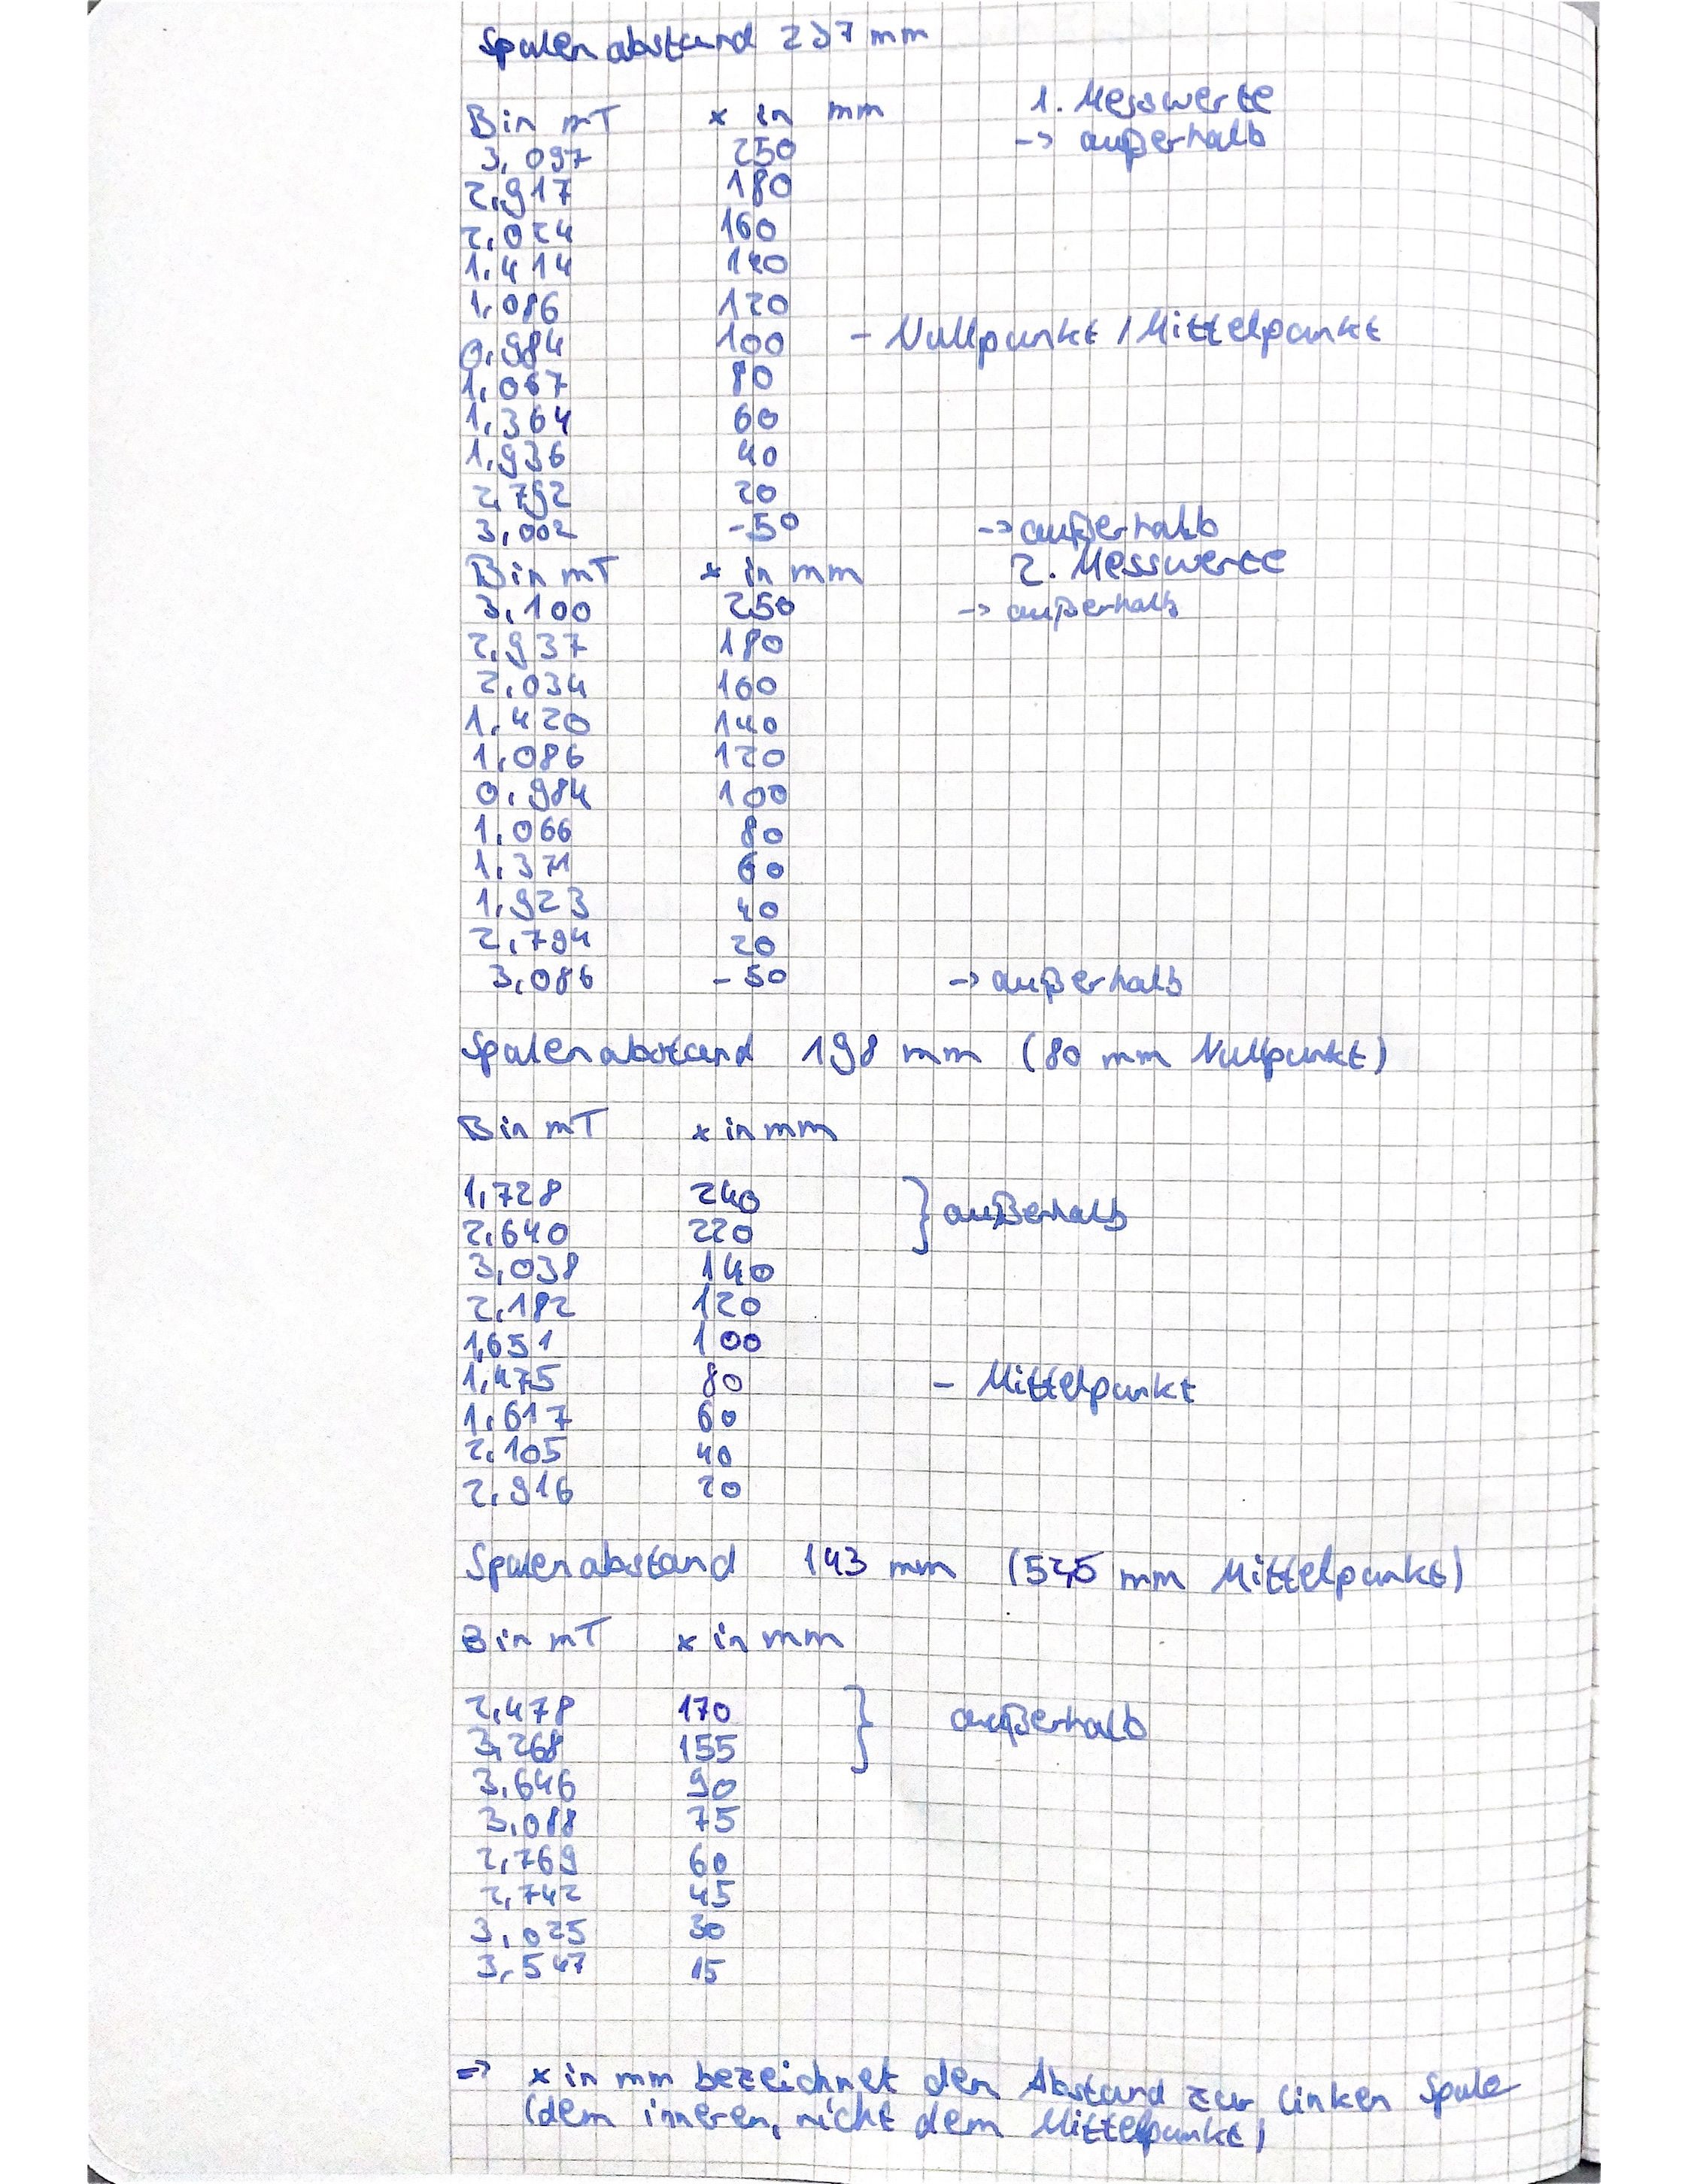 Spulenabstand 237 mm
B in mT x in mm 1. Messwerte
3,097 250 -> außerhalb
2,917 180
2,024 160
1,414 140
1,086 120
0,984 100 - Nullpunkt / Mittelpunkt
1,067 80
1,364 60
1,936 40
2,792 20
3,002 -50 -> außerhalb
B in mT x in mm 2. Messwerte
3,100 250 -> außerhalb
2,937 180
2,034 160
1,420 140
1,086 120
0,984 100
1,066 80
1,371 60
1,923 40
2,794 20
3,086 -50 -> außerhalb
Spulenabstand 198 mm (80 mm Nullpunkt)
B in mT x in mm
1,728 240 } außerhalb
2,640 220
3,038 140
2,182 120
1,651 100
1,475 80 - Mittelpunkt
1,617 60
2,105 40
2,916 20
Spulenabstand 143 mm (52,5 mm Mittelpunkt)
B in mT x in mm
2,478 170 } außerhalb
3,268 155
3,646 90
3,088 75
2,769 60
2,742 45
3,025 30
3,547 15
=> x in mm bezeichnet den Abstand zur linken Spule
(dem inneren, nicht dem Mittelpunkt)